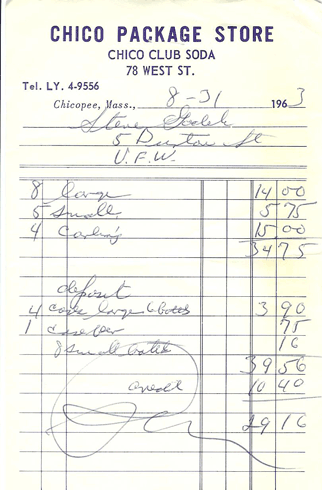 CHICO PACKAGE STORE
CHICO CLUB SODA
78 WEST ST.
Tel. LY. 4-9556
Chicopee, Mass., 8-31 1963
Steve
5 St
V.F.W.
8 large 14 00
5 small 5 75
4 15 00
34 75
deposit
4 case large 6 botts 3 90
1 case 75
8 small 16
39 56
credit 10 40
29 16